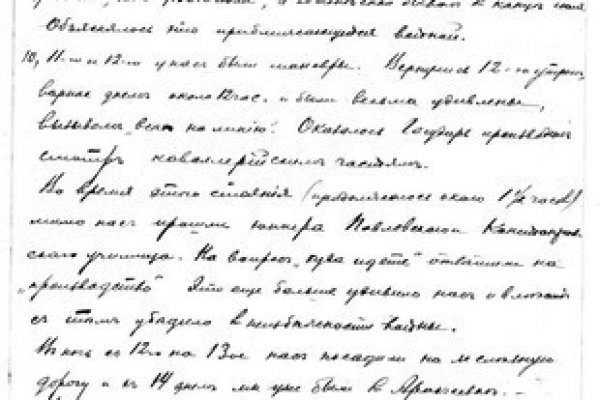 Объяснялось это приближающейся войной.
10, 11-го и 12-го у нас были маневры. Вернулись 12-го утром,
вернее днем около 12 час. и были весьма удивлены,
вызовом „всех на линию". Оказалось Государь производил
смотр кавалерийским частям.
Во время этого стояния (продолжалось около 1½ часов)
мимо нас прошли юнкера Павловского
ского училища. На вопрос „куда идете" ответили на
„производство" Это еще больше удивило нас и
с тем убедило в неизбежности войны.
В ночь с 12го на 13ое нас посадили на железную
дорогу и с 14 днем мы уже были в